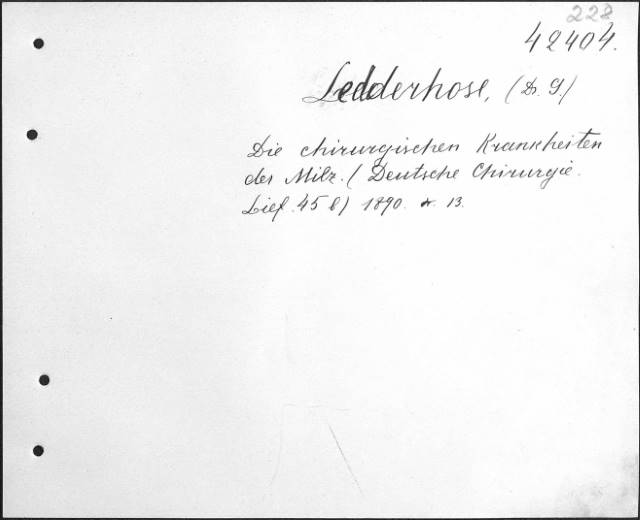 228
42404.
Ledderhose, (Dr. G)
Die chirurgischen Krankheiten
der Milz. (Deutsche Chirurgie.
Lief. 45 b) 1890. 13.